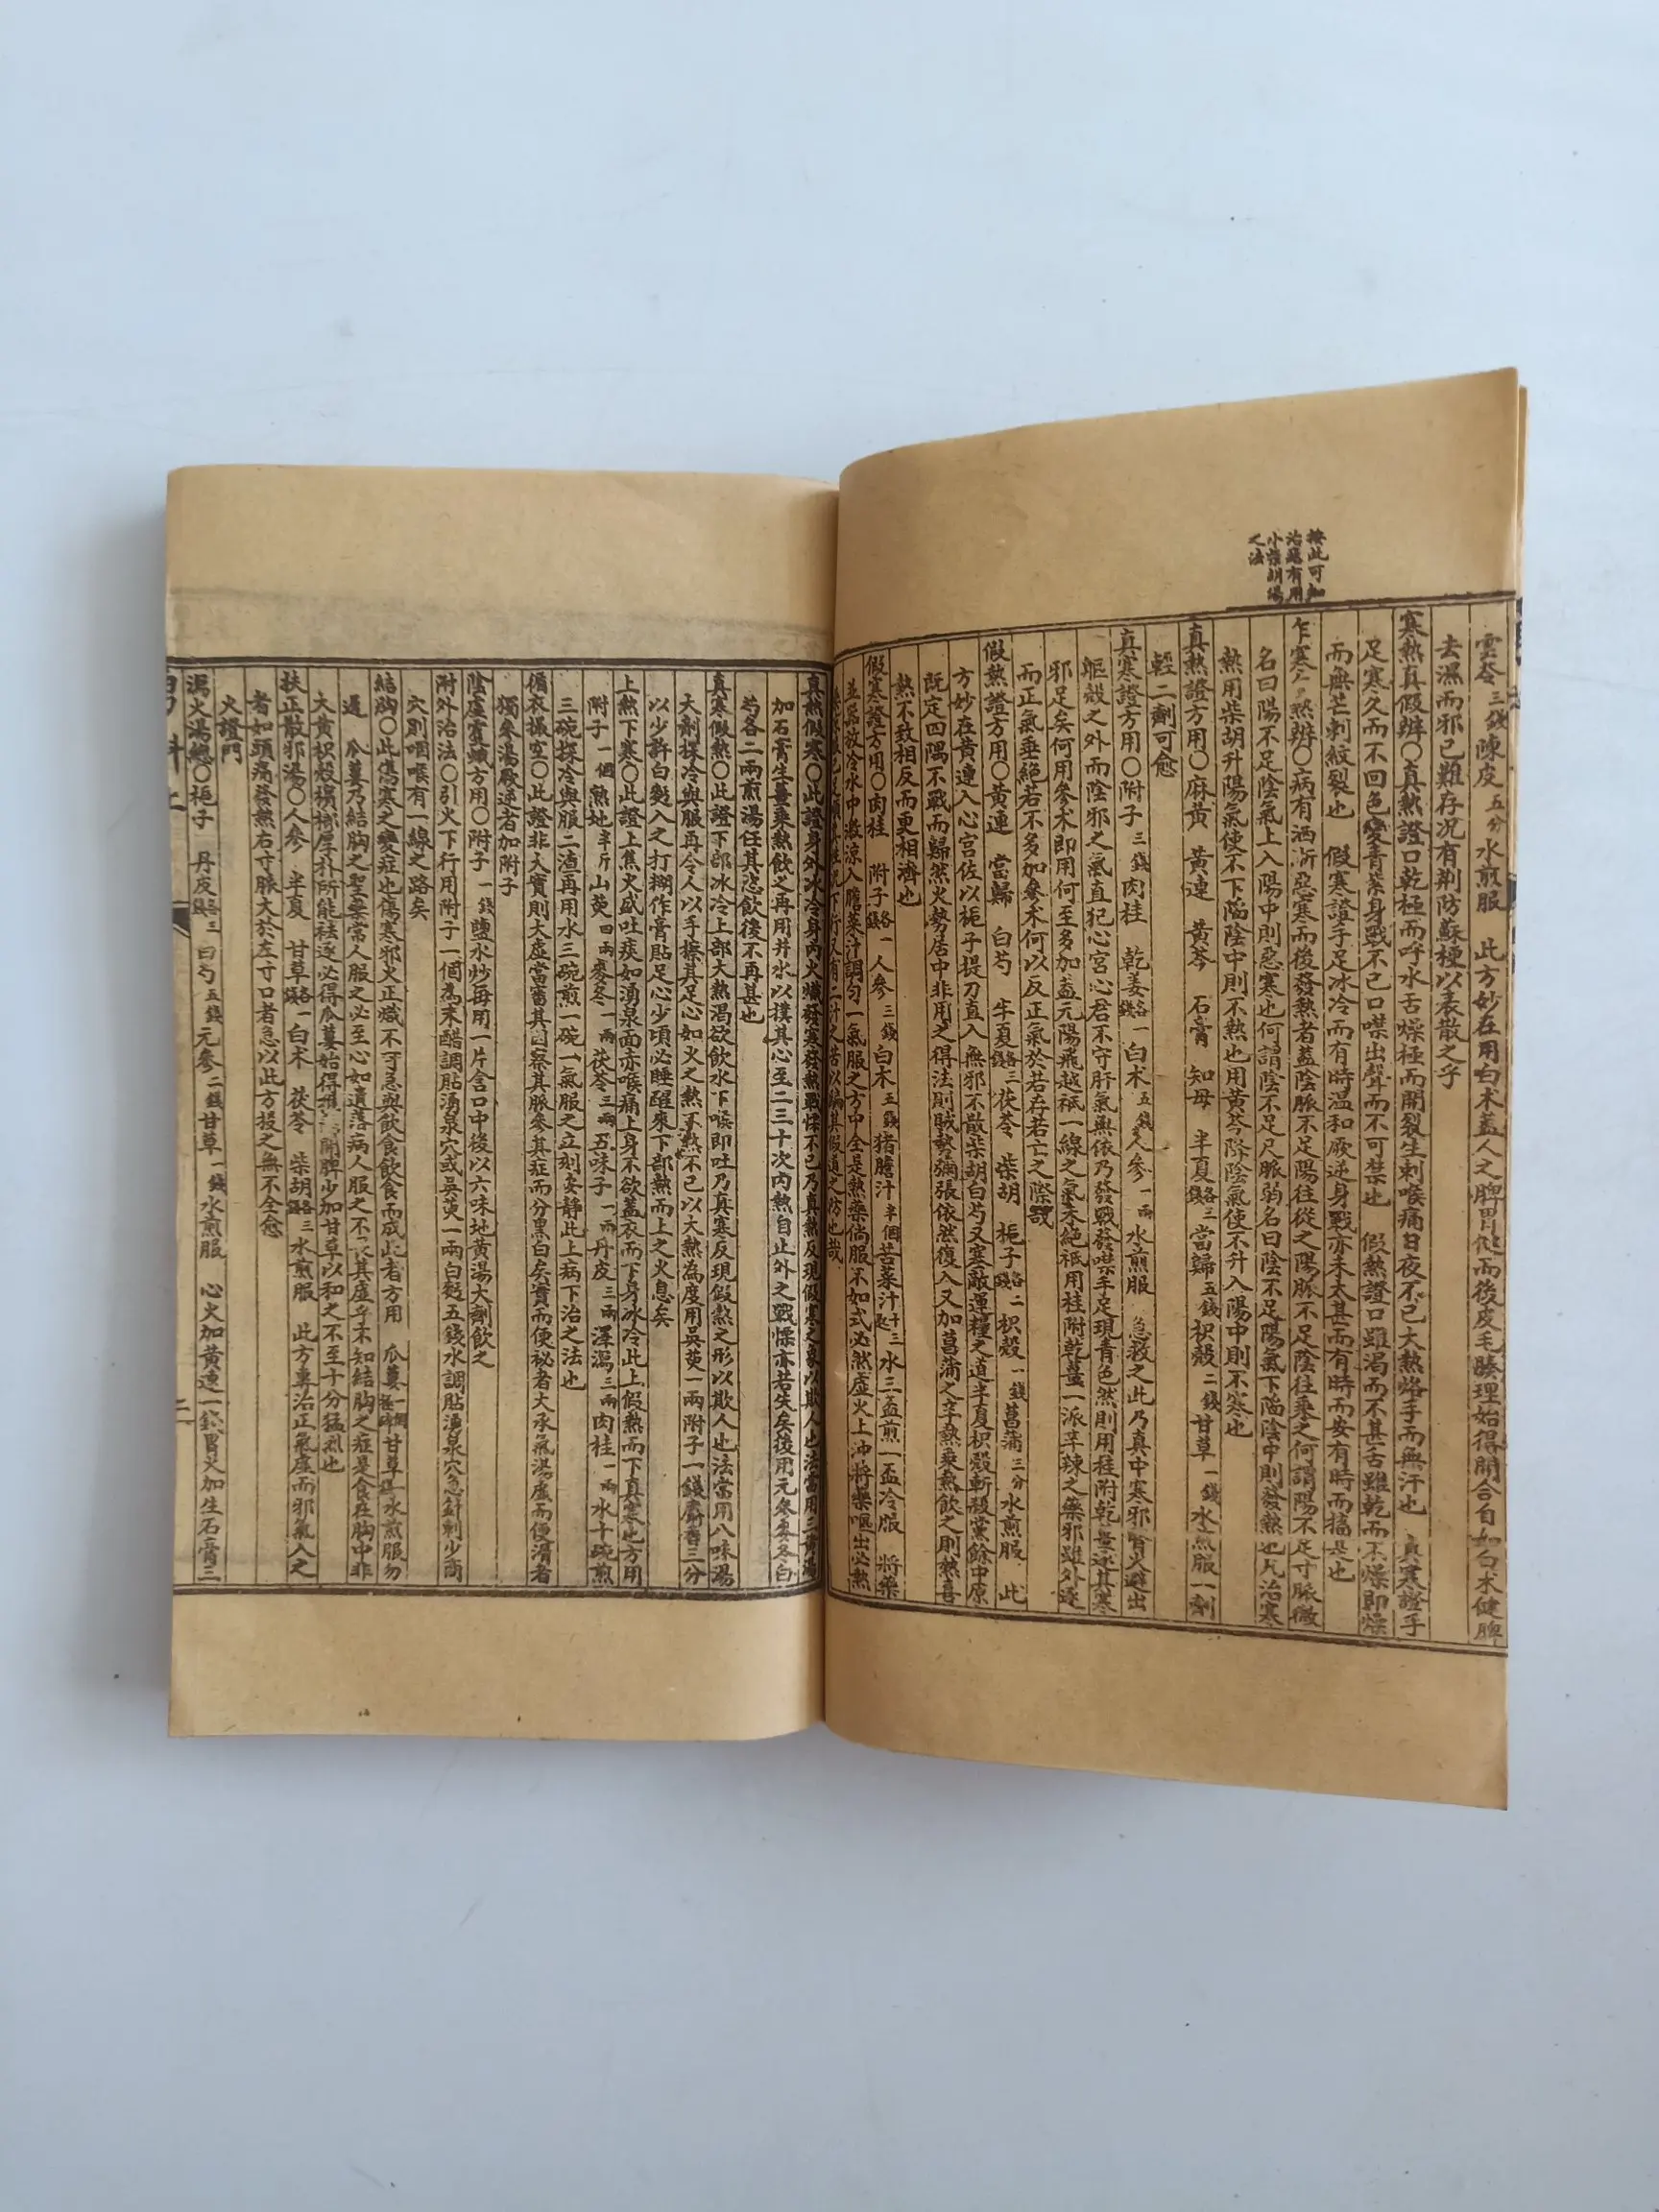 按此可知
治瘧有用
小柴胡湯
之法
雲苓三錢 陳皮五分 水煎服 此方妙在用白朮蓋人之脾胃健而後皮毛腠理始得開合自如白朮健脾
去濕而邪已難存况有荆防蘇梗以表散之乎
寒熱真假辨○真熱證口乾極而呼水舌燥極而開裂生刺喉痛日夜不已大熱烙手而無汗也 真寒證手
足寒久而不回色變青紫身戰不已口噤出聲而不可禁也 假熱證口雖渴而不甚舌雖乾而不燥即燥
而無芒刺紋裂也 假寒證手足冰冷而有時温和厥逆身戰亦未太甚而有時而安有時而搐是也
乍寒乍熱辨○病有洒淅惡寒而後發熱者蓋陰脈不足陽往從之陽脈不足陰往乘之何謂陽不足寸脈微
名曰陽不足陰氣上入陽中則惡寒也何謂陰不足尺脈弱名曰陰不足陽氣下陷陰中則發熱也凡治寒
熱用柴胡升陽氣使不下陷陰中則不熱也用黄芩降陰氣使不升入陽中則不寒也
真熱證方用○麻黄 黄連 黄芩 石膏 知母 半夏各三錢 當歸五錢 枳殼二錢 甘草一錢 水煎服一劑
輕二劑可愈
真寒證方用○附子三錢 肉桂 乾姜各一錢 白朮五錢 人參一兩 水煎服 急救之此乃真中寒邪腎火避出
軀殼之外而陰邪之氣直犯心宮心君不守肝氣無依乃發戰發噤手足現青色然則用桂附乾薑逐其寒
邪足矣何用參朮即用何至多加蓋元陽飛越祇一線之氣未絕祇用桂附乾薑一派辛辣之藥邪雖外逐
而正氣垂絕若不多加參朮何以反正氣於若存若亡之際哉
假熱證方用○黄連 當歸 白芍 半夏各三錢 茯苓 柴胡 梔子各二錢 枳殼一錢 菖蒲三分 水煎服 此
方妙在黄連入心宮佐以梔子提刀直入無邪不散柴胡白芍又塞敵運糧之道半夏枳殼斬殺黨餘中原
既定四隅不戰而歸然火勢居中非用之得法則賊勢彌張依然復入又加菖蒲之辛熱乘熱飲之則熱喜
熱不致相反而更相濟也
假寒證方用○肉桂 附子各一錢 人參三錢 白朮五錢 猪膽汁半個 苦菜汁十三匙 水三盃煎一盃冷服 將藥
並器放冷水中激涼入膽菜汁調匀一氣服之方中全是熱藥倘服不如式必然虚火上冲將藥嘔出必熱
真熱假寒○此證身外冰冷身内火熾發寒發熱戰慄不已乃真熱反現假寒之象以欺人也法當用三黄湯
加石膏生薑乘熱飲之再用井水以撲其心至二三十次内熱自止外之戰慄亦若失矣後用元參麥冬白
芍各二兩煎湯任其恣飲後不再甚也
真寒假熱○此證下部冰冷上部大熱渴欲飲水下喉即吐乃真寒反現假熱之形以欺人也法常用八味湯
大劑探冷與服再令人以手擦其足心如火之熱不熱不已以大熱為度用吳萸一兩附子一錢麝香三分
以少許白麪入之打糊作膏貼足心少頃必睡醒來下部熱而上之火息矣
上熱下寒○此證上焦火盛吐痰如湧泉面赤喉痛上身不欲蓋衣而下身冰冷此上假熱而下真寒也方用
附子一個 熟地半斤 山萸四兩 麥冬一兩 茯苓三兩 五味子一兩 丹皮三兩 澤瀉三兩 肉桂一兩 水十碗煎
三碗探冷與服二渣再用水三碗煎一碗一氣服之立刻安静此上病下治之法也
循衣撮空○此證非大實則大虚當審其因察其脈參其症而分黑白矣實而便祕者大承氣湯虚而便滑者
獨參湯厥逆者加附子
陰虚雙蛾方用○附子一錢 鹽水炒每用一片含口中後以六味地黄湯大劑飲之
附外治法○引火下行用附子一個為末醋調貼湧泉穴或吳萸一兩白麪五錢水調貼湧泉穴急針刺少商
穴則咽喉有一線之路矣
結胸○此傷寒之變症也傷寒邪火正熾不可急與飲食飲食而成此者方用 瓜蔞一個搥碎 甘草一錢 水煎服勿
遲 瓜蔞乃結胸之聖藥常人服之必至心如遺落病人服之不畏其虚乎不知結胸之症是食在胸中非
大黄枳殼檳榔厚朴所能祛逐必得瓜蔞始得推蕩開脾少加甘草以和之不至十分猛烈也
扶正散邪湯○人參 半夏 甘草各一錢 白朮 茯苓 柴胡各三錢 水煎服 此方專治正氣虚而邪氣入之
者如頭痛發熱右寸脈大於左寸口者急以此方投之無不全愈
火證門
瀉火湯總○梔子 丹皮各三錢 白芍五錢 元參二錢 甘草一錢 水煎服 心火加黄連一錢胃火加生石膏三
男科上
二